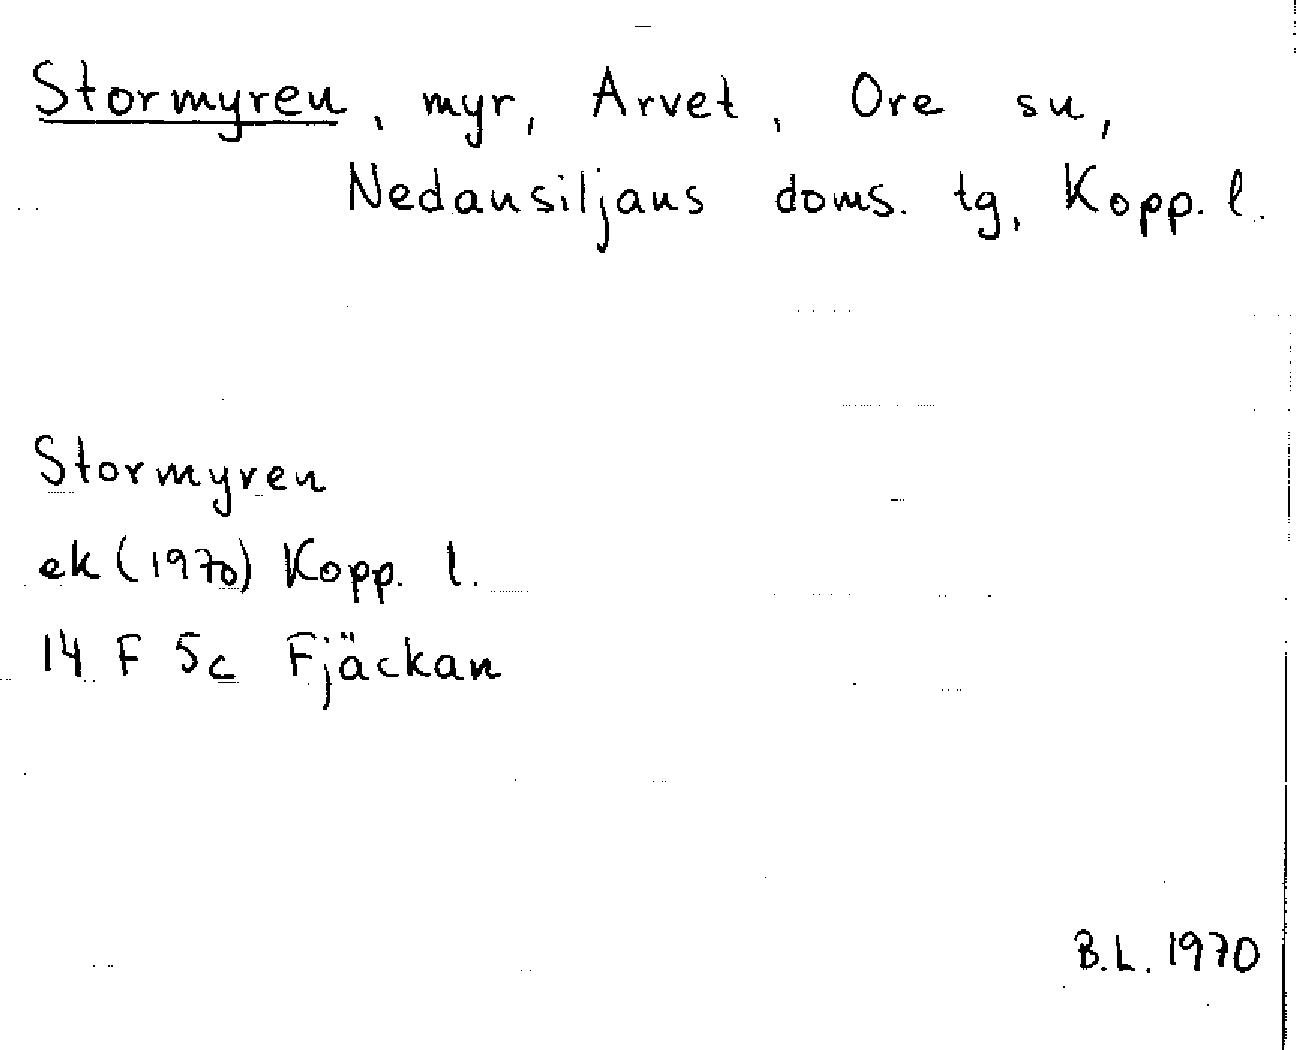 Stormyren, myr, Arvet, Ore sn,
Nedansiljans doms. tg, Kopp. l.
Stormyren
ek (1970) Kopp. l.
14 F 5c Fjäckan
B.L. 1970